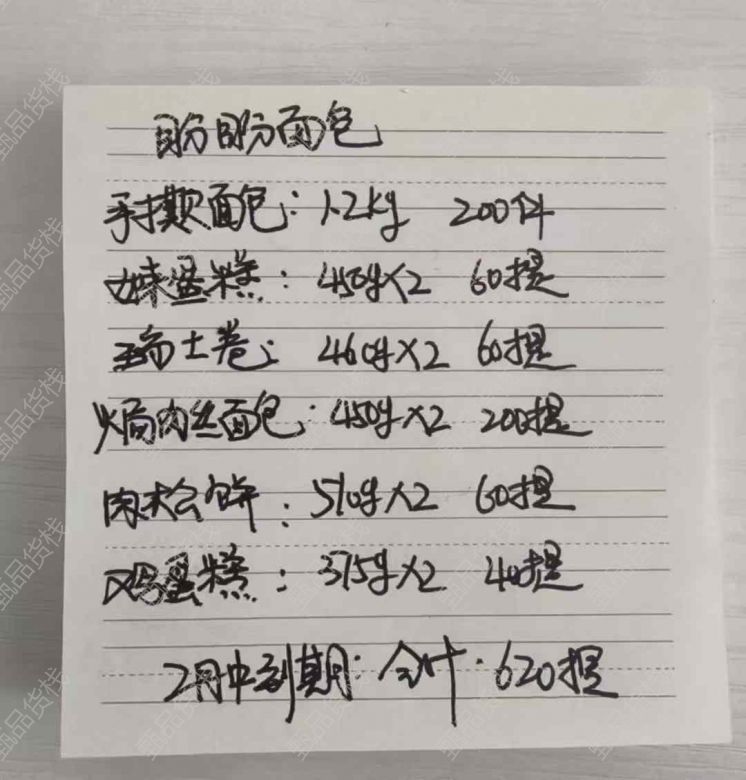 盼盼面包
手撕面包：1.2kg 200件
妹蛋糕：450g×2 60提
瑞士卷：460g×2 60提
焗肉丝面包：450g×2 200提
肉松饼：510g×2 60提
鸡蛋糕：375g×2 40提
2月中到期：合计：620提
甄品货栈